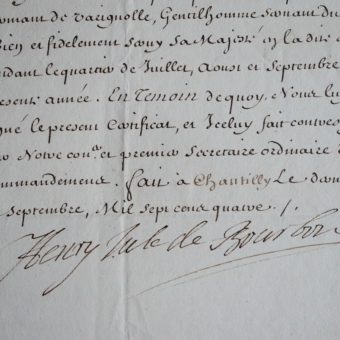 de Vaignolle, Gentilhomme servant du
bien et fidelement servy sa Majesté en la dite
pendant le quartier de Juillet, Aoust et Septembre
presente année. En Temoin de quoy Nous lu
gné le present Certificat, et Iceluy fait contres
Notre con.er et premier Secretaire ordinaire d
ommandemens. fait à Chantilly Le
Septembre, Mil sept cens quatre /.
Henry Jule de Bourbon